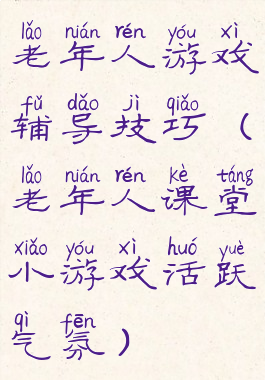 lǎo nián rén yóu xì
老年人游戏
fǔ dǎo jì qiǎo
辅导技巧（
lǎo nián rén kè táng
老年人课堂
xiǎo yóu xì huó yuè
小游戏活跃
qì fēn
气氛）